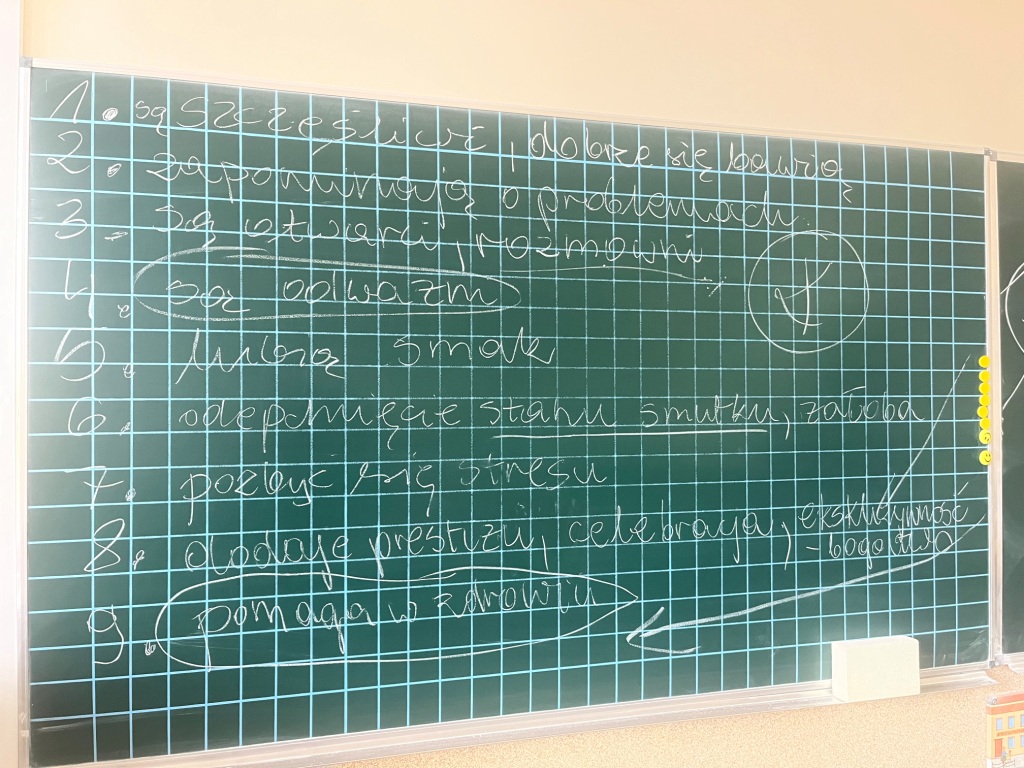 1. są szczęśliwi, dobrze się bawią
2. zapominają o problemach
3. są otwarci, rozmowni
4. są odważni
5. lubią smak
6. odepchnięcie stanu smutku, żałoba
7. pozbyć się stresu
8. dodaje prestiżu, celebracja, ekskluzywność
- bogactwo
9. pomaga w zdrowiu